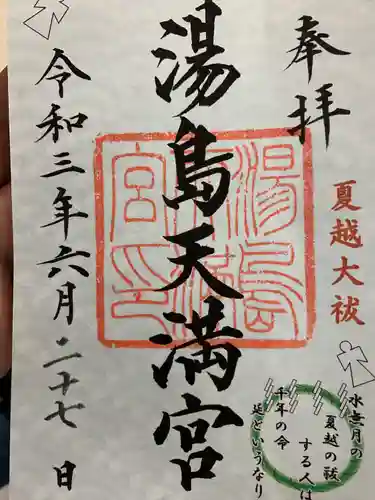 奉拝
夏越大祓
湯島天満宮
湯島天満宮印
令和三年六月二十七日
水無月の
夏越の祓
する人は
千年の命
延ぶというなり